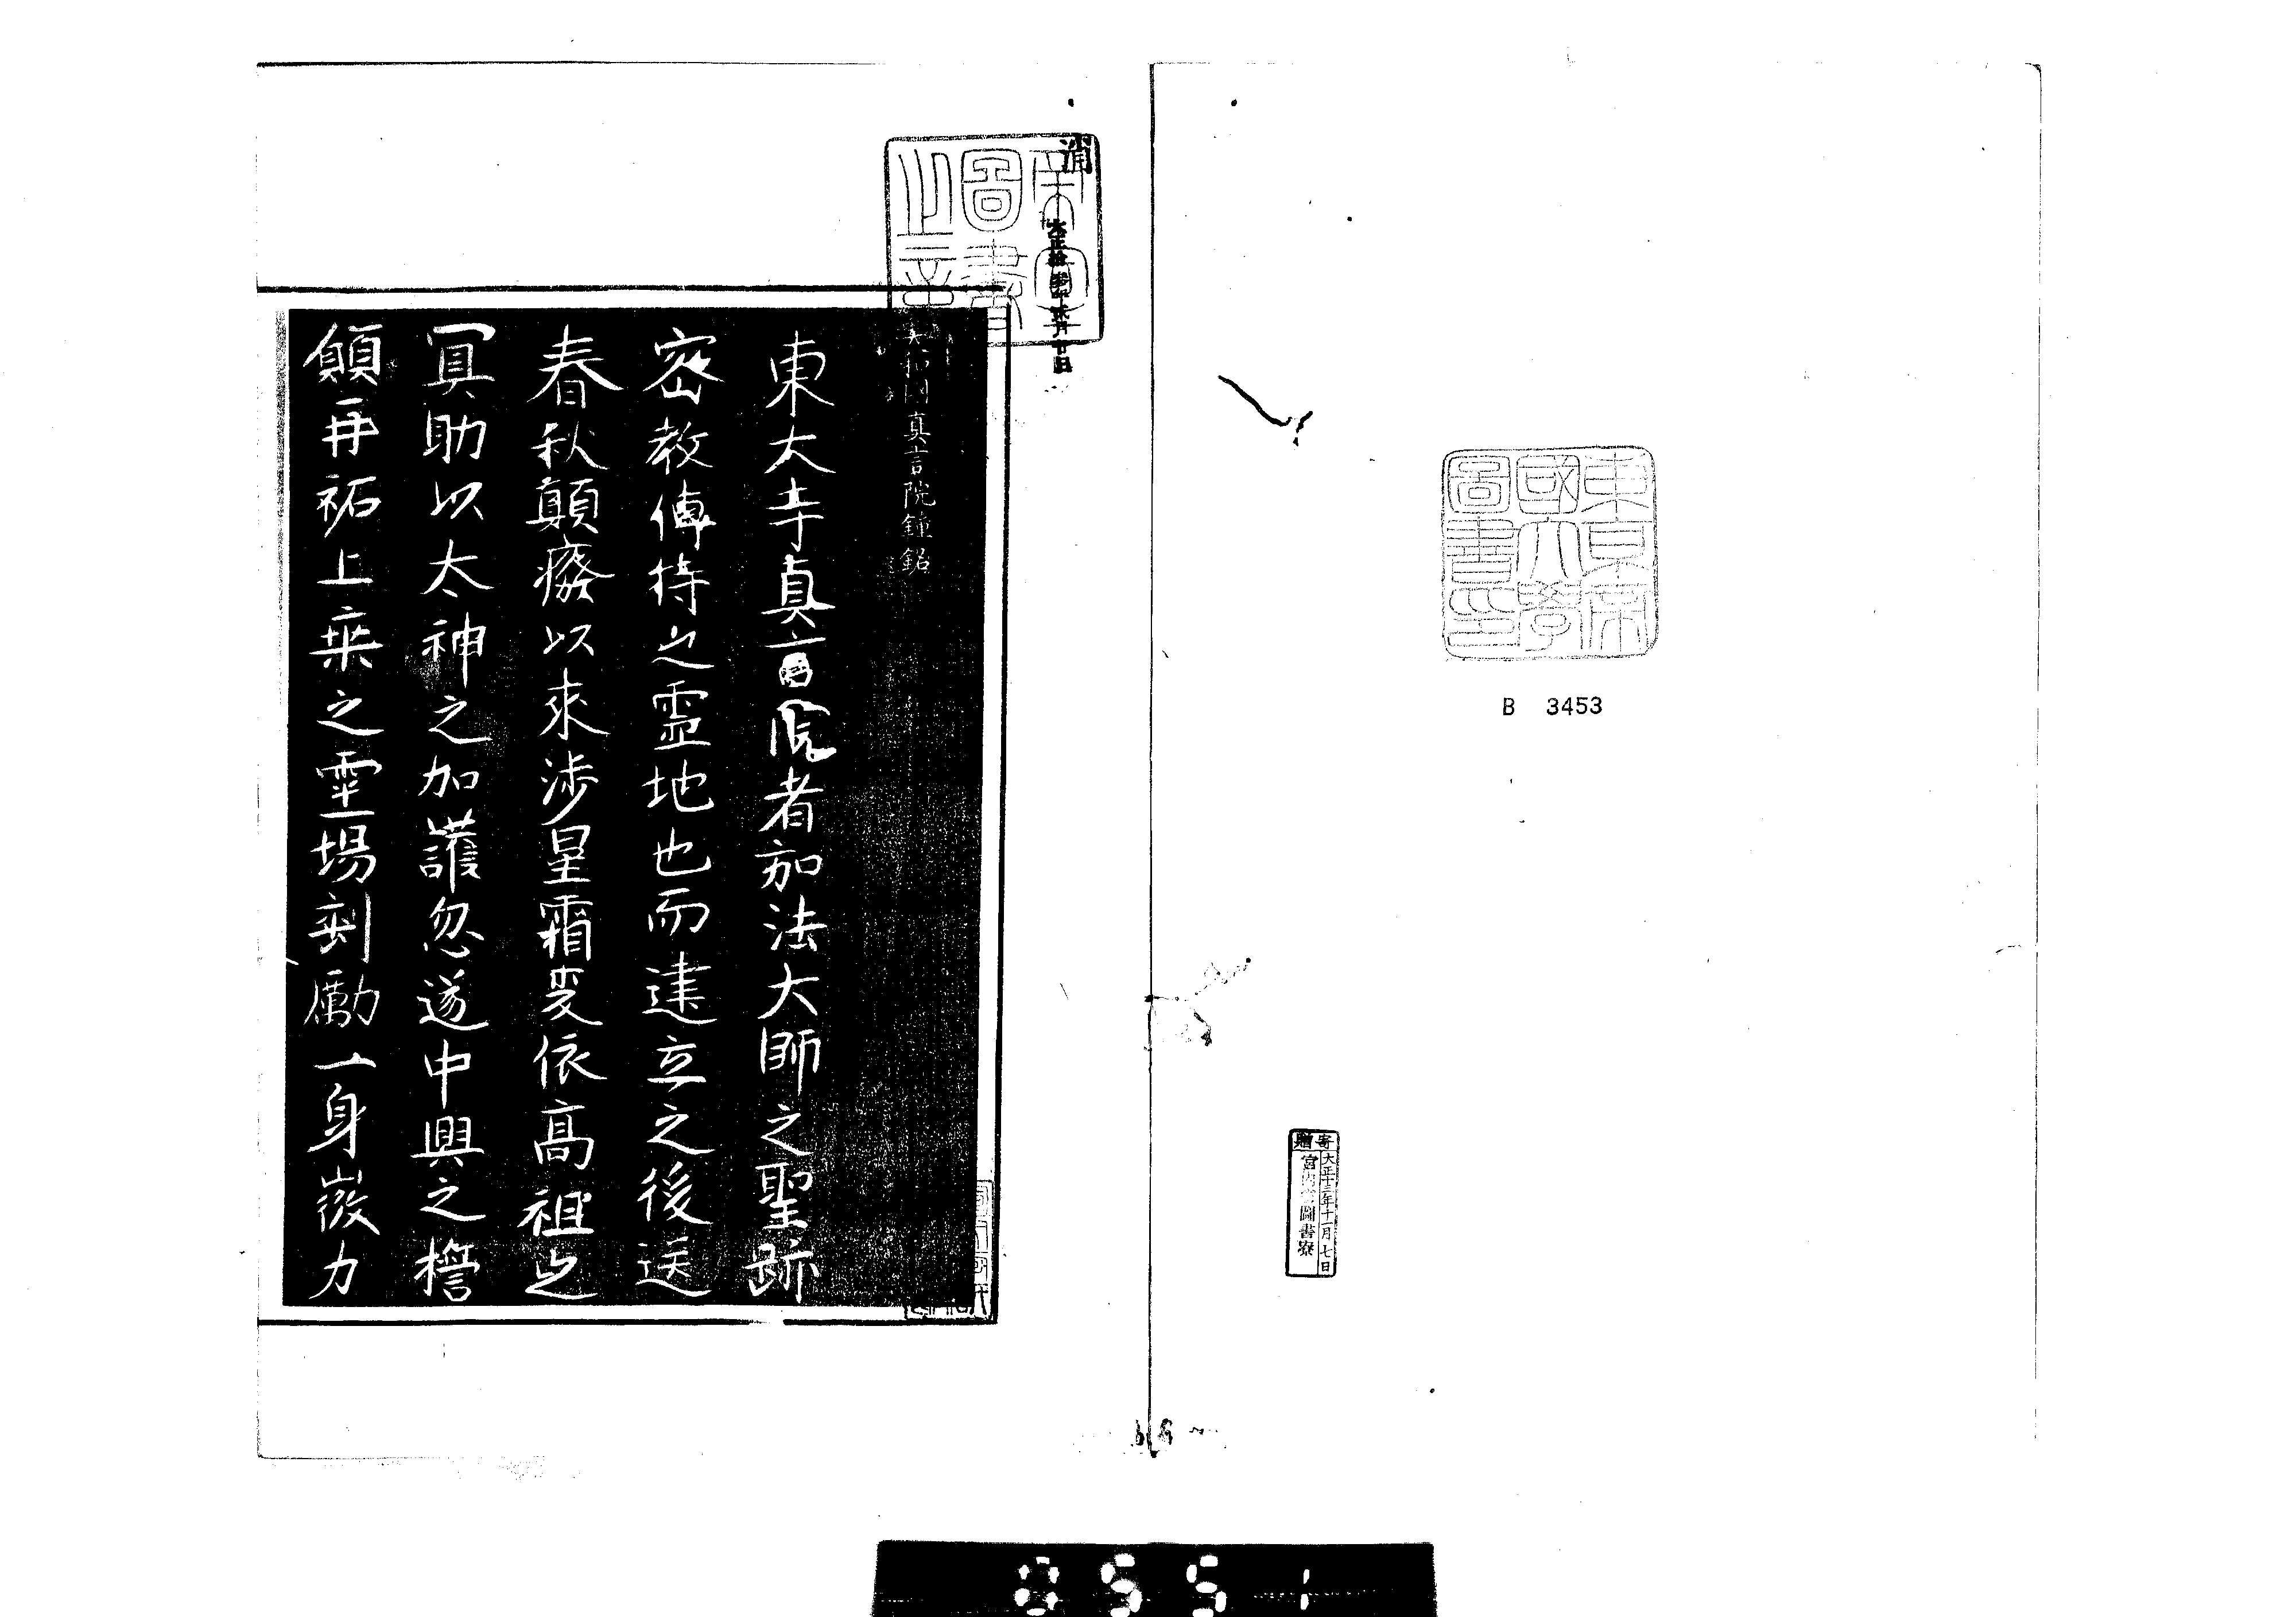 東京帝
國大學
圖書印
B 3453
寄贈
大正十三年十一月七日
宮内省圖書寮
消
帝室
圖書
之章
大和國真言院鐘銘
東大寺真言院者加法大師之聖跡
密教傳持之靈地也而建立之後送
春秋顛癈以來渉星霜変依高祖之
冥助以大神之加護忽遂中興之櫓
願再祐上乗之霊場剋勵一身微力
0551